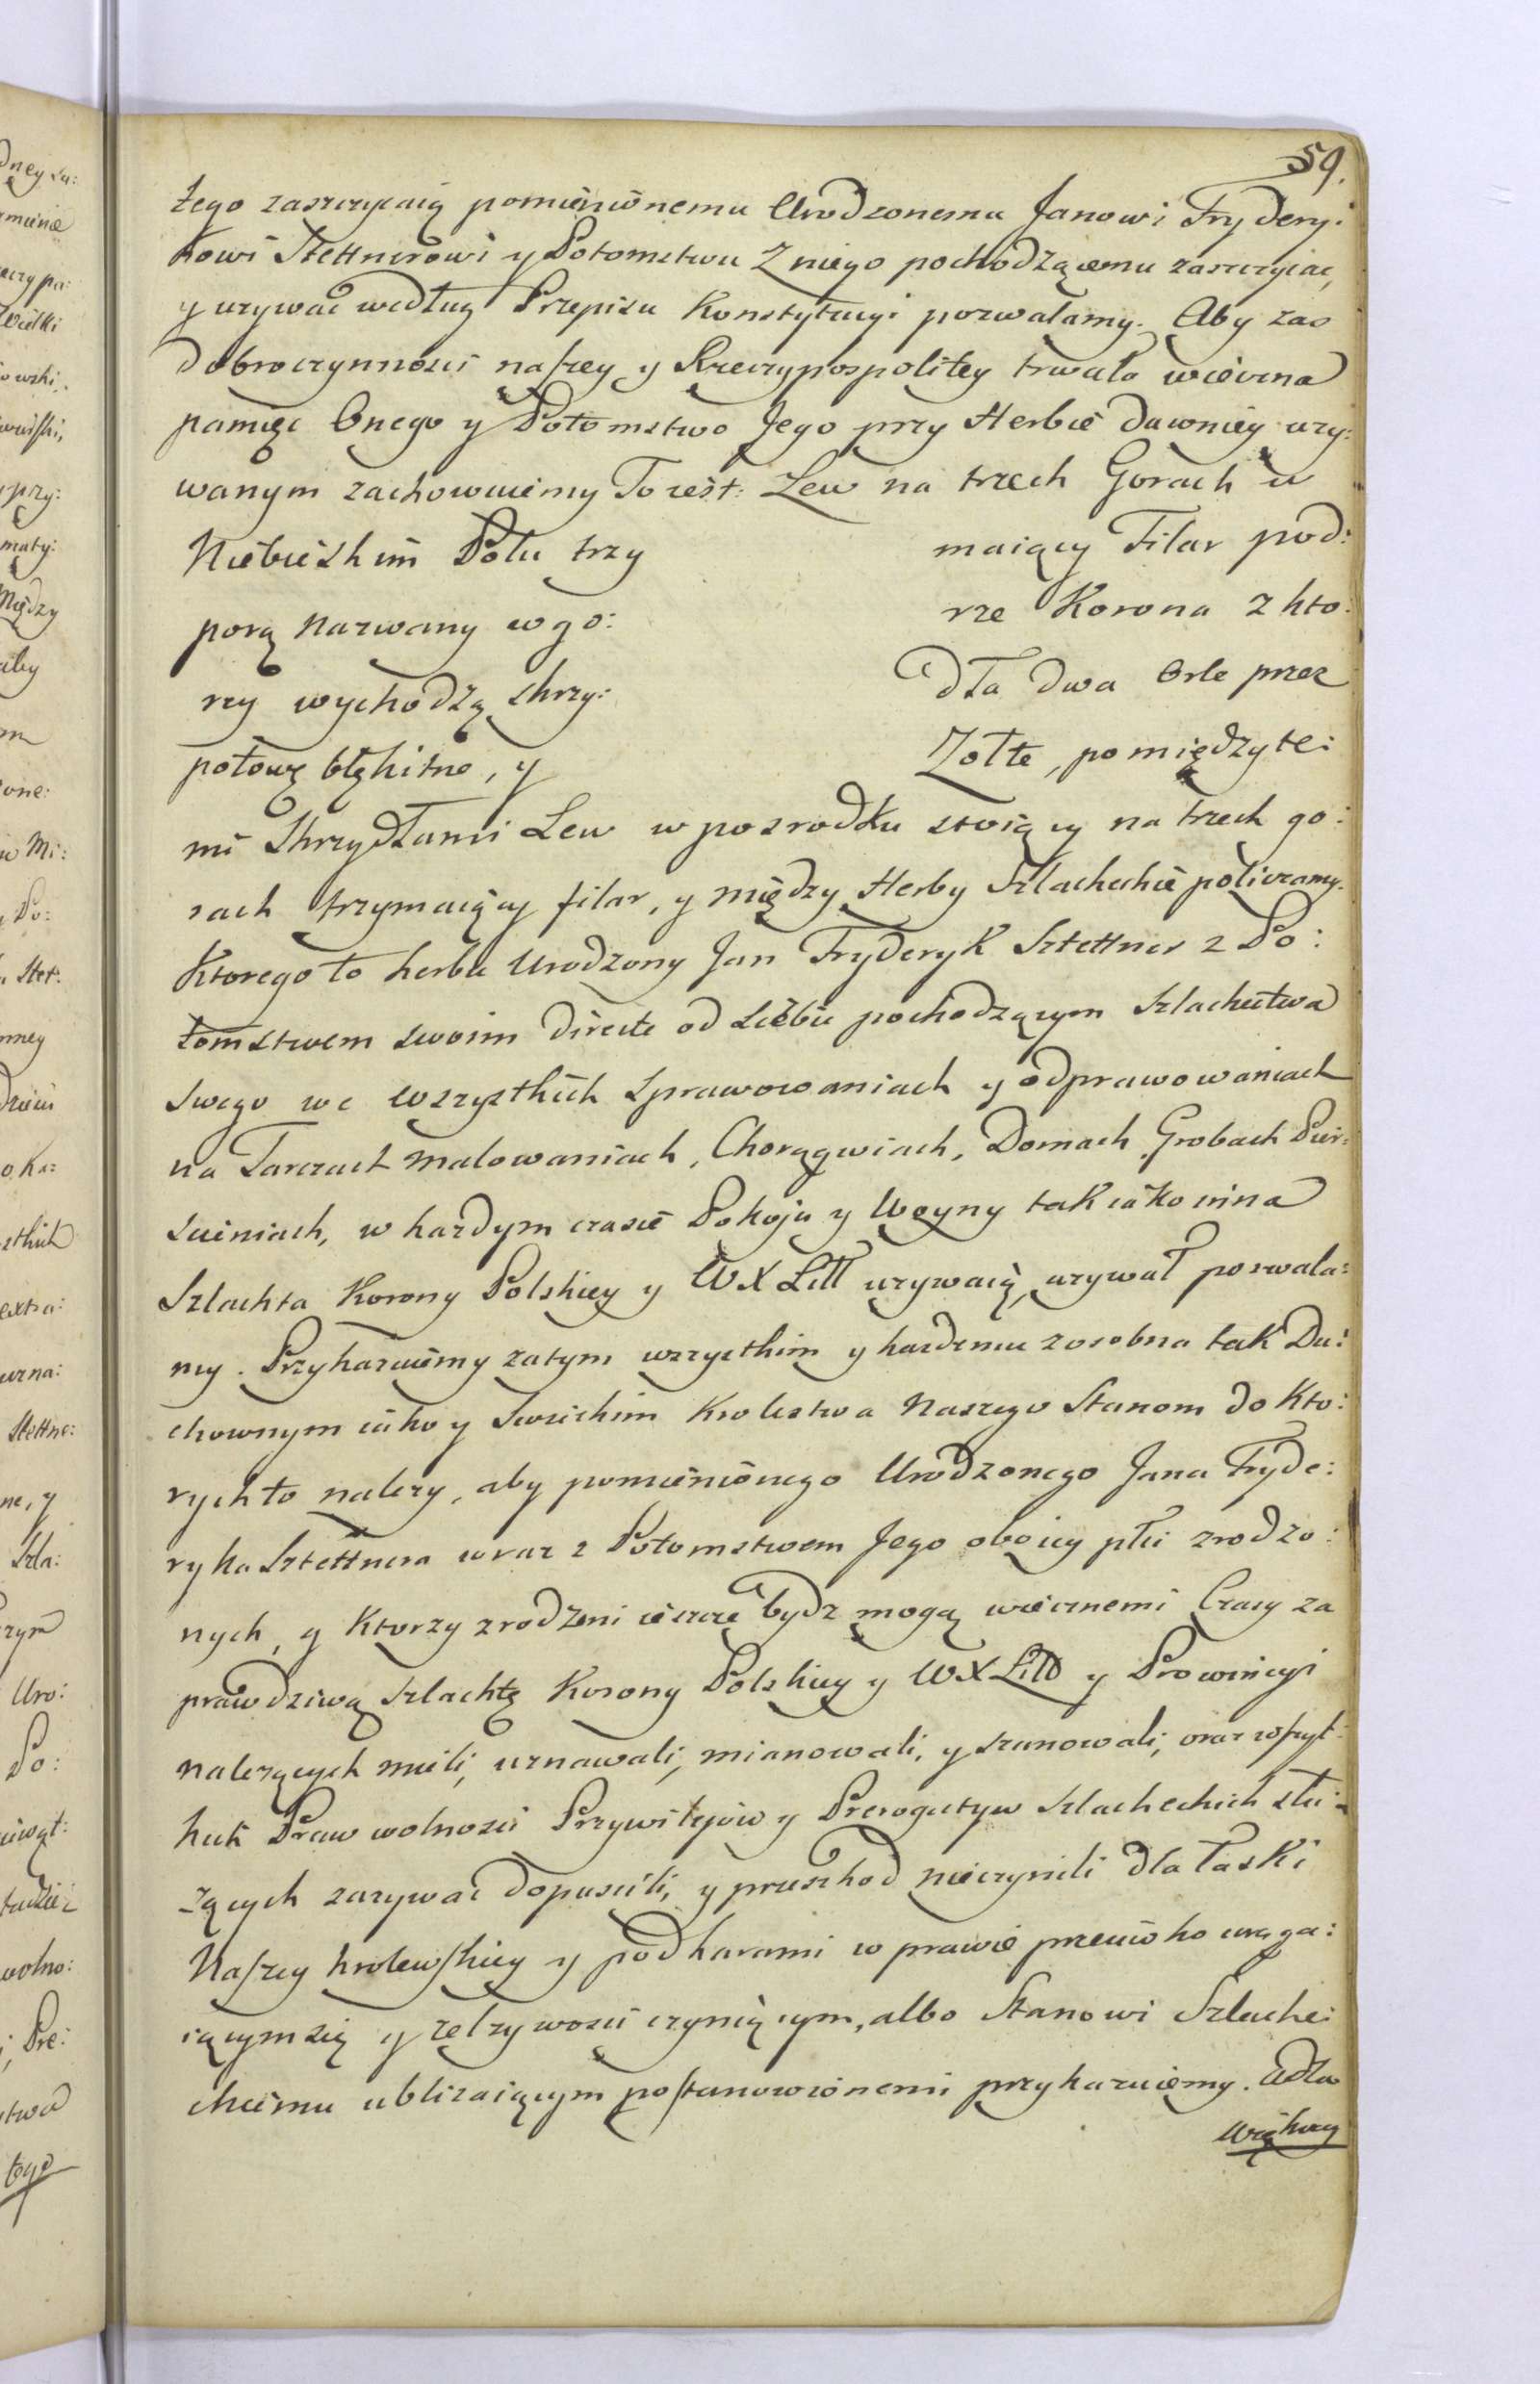 59.
tego zaszczycaią pomienionemu Urodzonemu Janowi Frydery:
kowi Stettnerowi y Potomstwu z niego pochodzącemu zaszczycac,
y uzywać według Przepisu Konstytucyi pozwalamy. Aby zas
dobroczynności naszey y Rzeczypospolitey trwała wieczna
pamięc Onego y Potomstwo Jego przy Herbie dawniey uzy:
wanym zachowuiemy To iest: Lew na trzech Gorach w
Niebieskim Polu trzy maiący Filar pod:
porą nazwany w go: rze Korona z kto:
rey wychodzą skrzy: dła dwa Orle przez
połowę błękitne, y Zołte, pomiędzy te:
mi Skrzydłami Lew w posrodku stoiący na trzech go:
rach trzymaiący filar, y między Herby Szlacheckie policzamy.
Ktorego to herbu Urodzony Jan Fryderyk Sztettner z Po:
tomstwem swoim directe od siebie pochodzącym Szlachectwa
swego we wszystkich sprawowaniach y odprawowaniach
na Tarczach malowaniach, Chorągwiach, Domach, Grobach Pier:
scieniach, w kazdym czasie Pokoju y Woyny tak iako inna
Szlachta Korony Polskiey y WXLitt uzywaią, uzywał pozwala:
my. Przykazuiemy zatym wszystkim y kazdemu zosobna tak Du:
chownym iako y Swieckim Krolestwa Naszego Stanom do Kto:
rych to nalezy, aby pomienionego Urodzonego Jana Fryde:
ryka Sztettnera wraz z Potomstwem Jego oboiey płci zrodzo:
nych, y Ktorzy zrodzeni ieszcze bydz mogą wiecznemi Czasy za
prawdziwą Szlachtę Korony Polskiey y WXLitt y Prowincyi
nalezących mieli, uznawali, mianowali, y szanowali, oraz wszyt:
kich Praw wolnosci Przywilejów y Prerogatyw szlacheckich słu:
zących zazywać dopuscili, y przeszkod nieczynili dla łaski
Naszey krolewskiey y pod karami w prawie przeciwko uraga:
iącym się y zelzywosci czyniącym, albo Stanowi Szlache:
ckiemu ublizaiącym postanowionemi przykazuiemy. Adla
większey